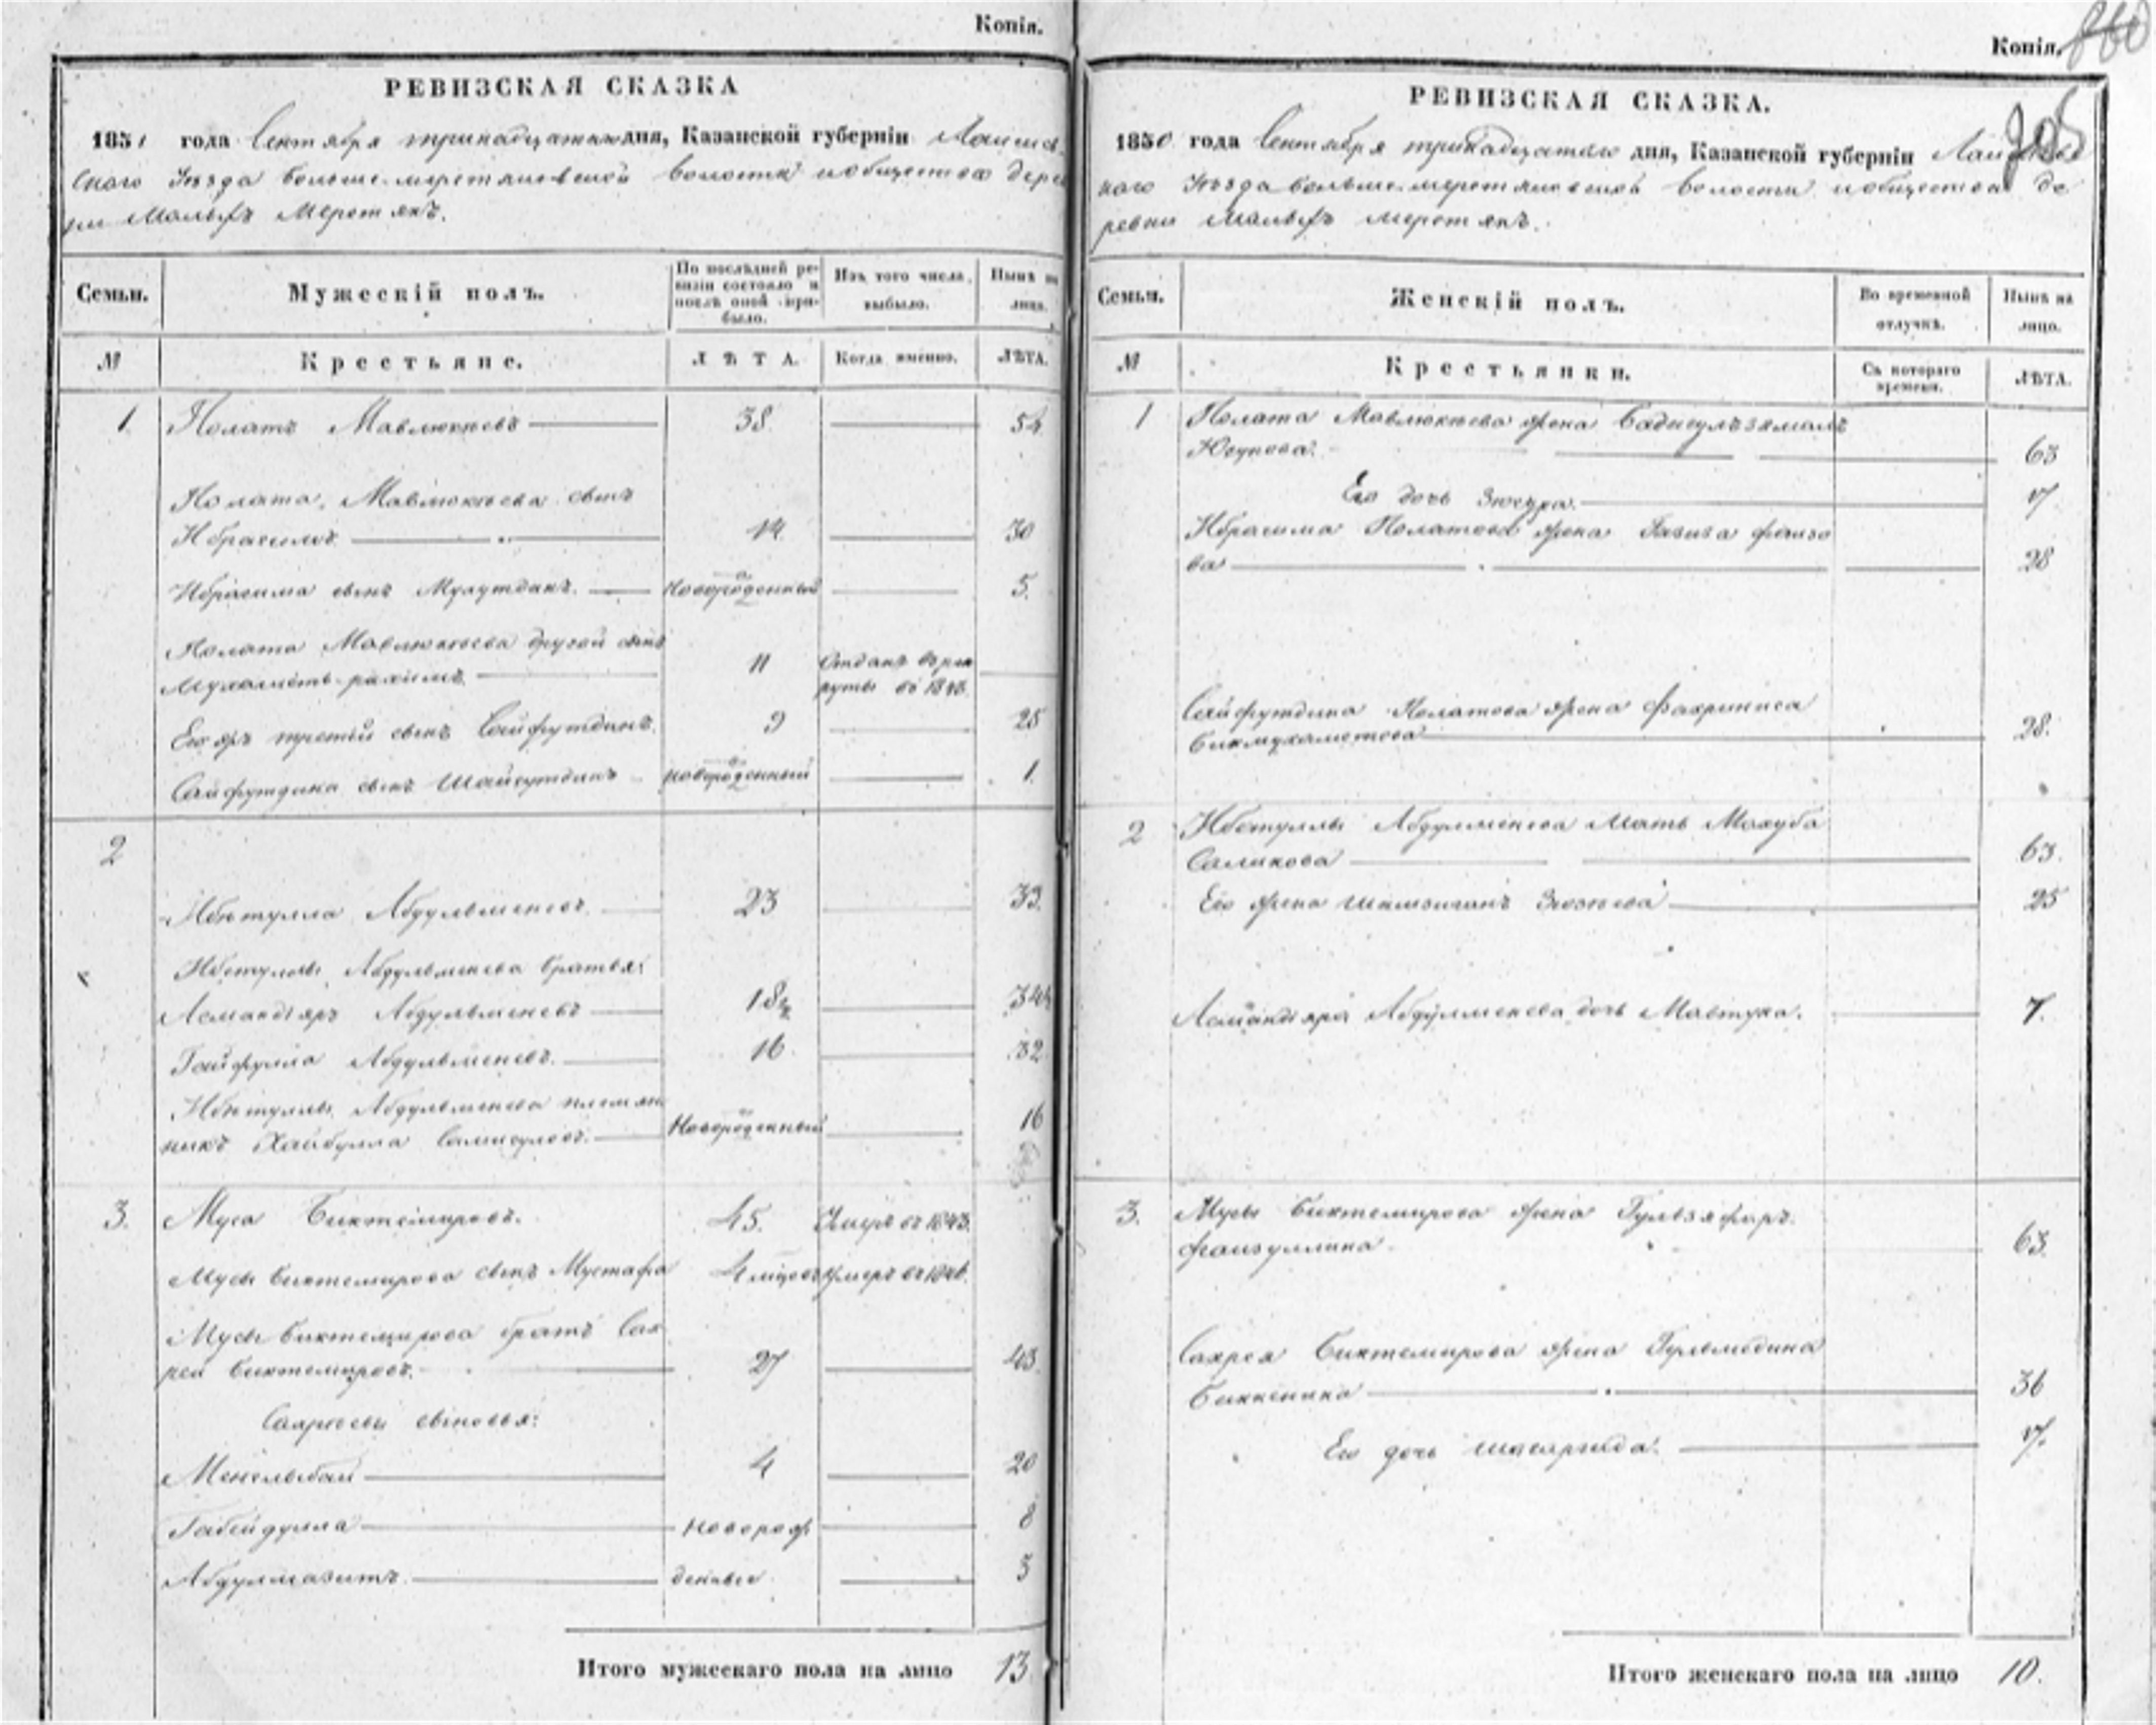 Копія.
РЕВИЗСКАЯ СКАЗКА
1850 года Сентября тринадцатаго дня, Казанской губерніи Лаишев-
скаго Уѣзда больше-меретяковской волости и общества дерев
ни Малыхъ Меретякъ.
Семьи. Мужескій полъ. По послѣдней ре- визіи состояло и послѣ оной при- было. Изъ того числа выбыло. Нынѣ на лицо.
№ Крестьяне. ЛѢТА. Когда именно. ЛѢТА.
1. Полатъ Мавлюкѣевъ 38. 54
Полата Мавлюкѣева сынъ
Ибрагимъ 14 30
Ибрагима сынъ Мухутдинъ. Новорожденный 5.
Полата Мавлюкѣева другой сынъ
Мухаметь-рахимъ 11 Отданъ въ рек руты въ 1843.
Его жъ третій сынъ Сайфутдинъ. 9 25
Сайфутдина сынъ Шайхутдинъ новорожденный 1.
2
Ибѣтулла Абдульменевъ 23 39.
Ибетуллы Абдульменева братья:
Асмандіяръ Абдульменевъ 18½ 34½
Гайфулла Абдульменевъ. 16 32
Ибѣтуллы Абдульменева племян
никъ Хайбулла Самигуловъ. Новорожденный 16
3. Муса Биктемировъ. 45. Умеръ въ 1843.
Мусы Биктемирова сынъ Мустафа 4 мѣсяц. умеръ въ
Мусы Биктемирова братъ Сах-
рей Биктемировъ. 27 43
Сахрѣевы сыновья:
Менелыбай 4 20
Габейдулла новорож 8
Абдулмазитъ денные 3
Итого мужескаго пола на лицо 13
Копія.
РЕВИЗСКАЯ СКАЗКА.
1850 года Сентября тринадцатаго дня, Казанской губерніи Лаишевс
каго Уѣзда больше-меретяковской волости и общества де
ревни Малыхъ Меретякъ.
Семьи. Женскій полъ. Во временной отлучкѣ. Нынѣ на лицо.
№ Крестьянки. Съ котораго времени. ЛѢТА.
1 Полата Мавлюкѣева жена Бадигулъзямаль
Юсупова. 63
Его дочь Зюгура. 17
Ибрагима Полатова жена Газиза Фаизо
ва 28
Сайфутдина Полатова жена Фахриниса
Бикмухаметова 28.
2 Ибетуллы Абдулменева мать Махуба
Саликова 63.
Его жена 25
Асмандіяра Абдулменева дочь Мавтуха. 7.
3. Мусы Биктемирова жена Гульзяфаръ
Фаизуллина. 63.
Сахрея Биктемирова жена Гульмедина
Биккенина 36
Его дочь 17.
Итого женскаго пола на лицо 10.